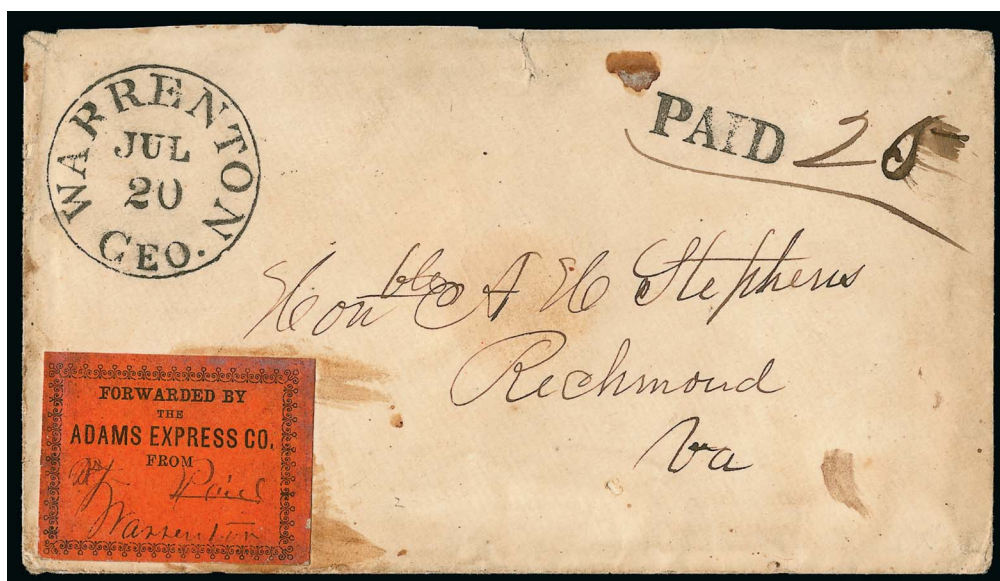 WARRENTON
JUL
20
GEO.
PAID 25
Honble A H Stephens
Richmond
Va
FORWARDED BY
THE
ADAMS EXPRESS CO.
FROM
Paid
Warrenton